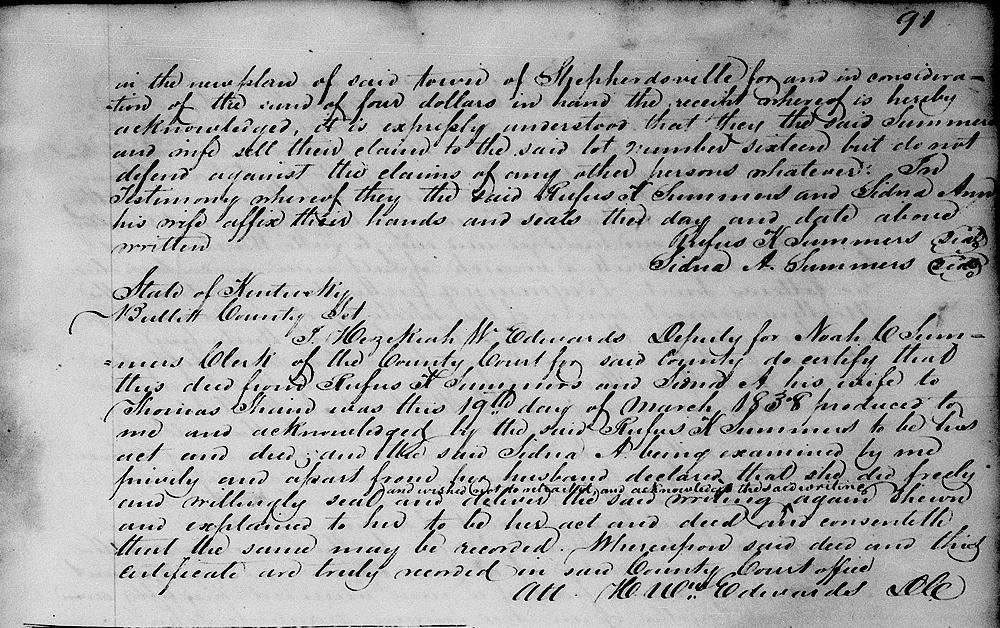 91
in the new plan of said town of Shepherdsville for and in considera-
-tion of the sum of four dollars in hand the receipt whereof is hereby
acknowledged, it is expressly understood that they the said Summers
and wife sell their claim to the said lot number sixteen but do not
defend against the claims of any other persons whatever. In
Testimony whereof they the said Rufus K Summers and Sidna Ann
his wife affix their hands and seals the day and date above
written Rufus K Summers Seal
Sidna A. Summers Seal
State of Kentucky
Bullitt County Sct
I, Hezekiah W Edwards Deputy for Noah C Sum-
=mers Clerk of the County Court for said County do certify that
this deed from Rufus K Summers and Sidna A his wife to
Thomas Shain was this 19th day of March 1838 produced to
me and acknowledged by the said Rufus K Summers to be his
act and deed, and the said Sidna A being examined by me
privily and apart from her husband declared that she did freely
and wished not to retract it, and acknowledged the said writing
and willingly seal and deliver the said writing again shewn
and explained to her to be her act and deed and consenteth
that the same may be recorded. Whereupon said deed and this
certificate are truly recorded in said County Court office
Att. H Wm Edwards DC